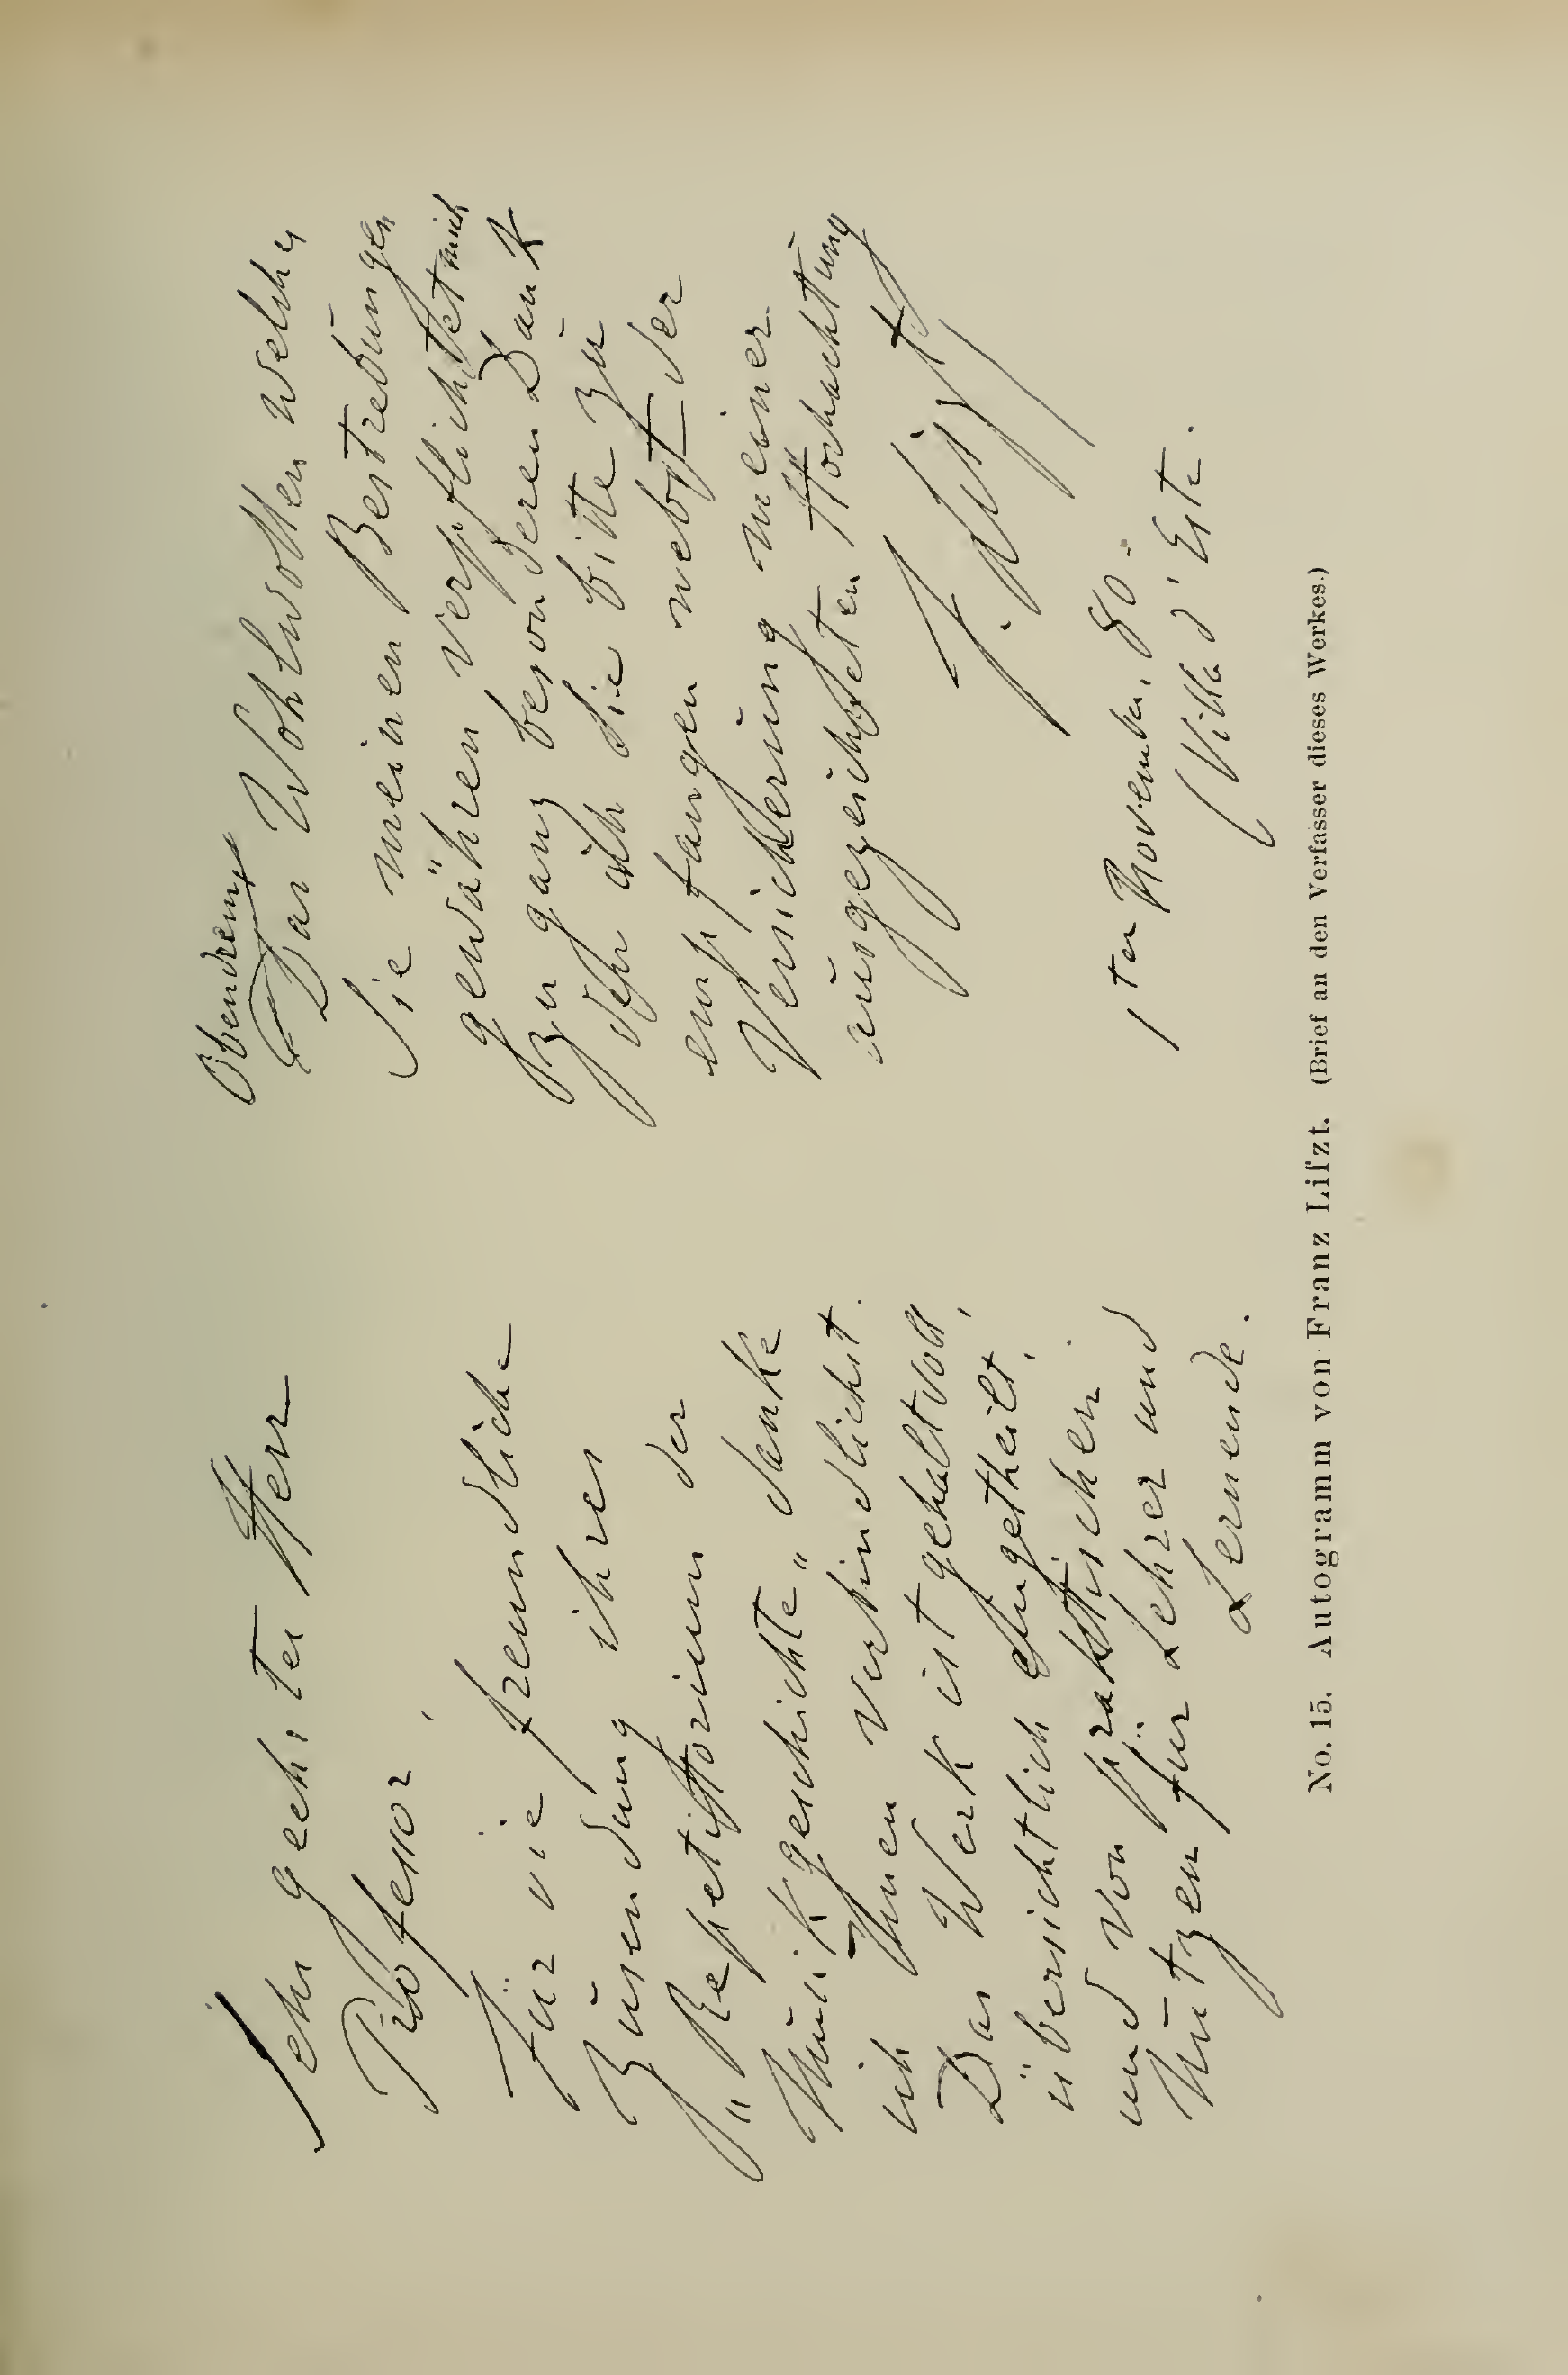 Sehr geehrter Herr
Professor,
Für die freundliche
Zusendung ihres
„Repetitorium der
Musikgeschichte“ danke
ich Ihnen verbindlichst.
Das Werk ist gehaltvoll,
übersichtlich eingetheilt,
und von praktischen
Nutzen für Lehrer und
Lernende.
Obendrein
Das Wohlwollen welches
Sie meinen Bestrebungen
gewähren verpflichtet mich
zu ganz besonderen Dank
den ich Sie bitte zu
empfangen nebst der
Versicherung meiner
ausgezeichneten Hochachtung
F. Liszt
1ten November, 80.
(Villa d'Este.
No. 15. Autogramm von Franz Lifzt. (Brief an den Verfasser dieses Werkes.)